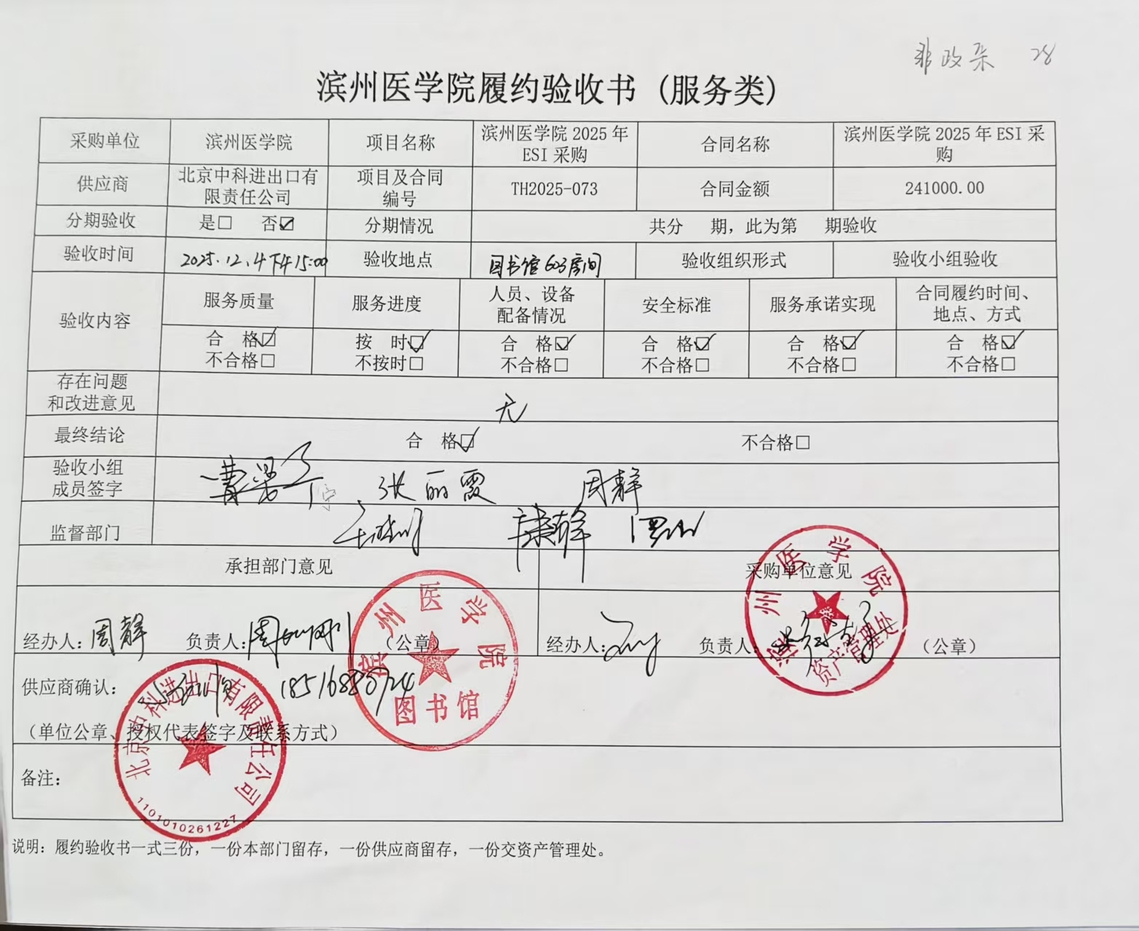 非政采 28
滨州医学院履约验收书（服务类）
采购单位 滨州医学院 项目名称 滨州医学院 2025 年 ESI 采购 合同名称 滨州医学院 2025 年 ESI 采购
供应商 北京中科进出口有限责任公司 项目及合同编号 TH2025-073 合同金额 241000.00
分期验收 是□ 否☑ 分期情况 共分 期，此为第 期验收
验收时间 2025.12.4下午15:00 验收地点 图书馆603房间 验收组织形式 验收小组验收
验收内容 服务质量 服务进度 人员、设备配备情况 安全标准 服务承诺实现 合同履约时间、地点、方式
合 格☑ 按 时☑ 合 格☑ 合 格☑ 合 格☑ 合 格☑
不合格□ 不按时□ 不合格□ 不合格□ 不合格□ 不合格□
存在问题和改进意见 无
最终结论 合 格☑ 不合格□
验收小组成员签字 张丽霞 周静
监督部门
承担部门意见 采购单位意见
经办人：周静 负责人： （公章） 经办人： 负责人： （公章）
供应商确认： 18516880724
（单位公章、授权代表签字及联系方式）
备注：
说明：履约验收书一式三份，一份本部门留存，一份供应商留存，一份交资产管理处。
滨州医学院
图书馆
滨州医学院
资产管理处
北京中科进出口有限责任公司
1101010261227